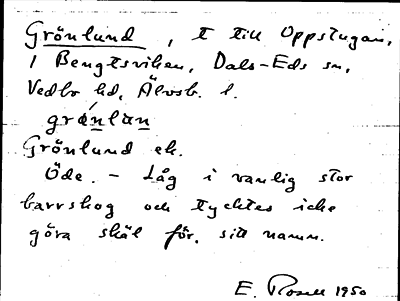 Grönlund, t till Oppstugan,
i Bengtsviken, Dals-Eds sn,
Vedbo hd, Älvsb. l.
grǿnlun
Grönlund ek.
Öde. - Låg i vanlig stor
barrskog och tycktes icke
göra skäl för sitt namn.
E. Rosell 1950